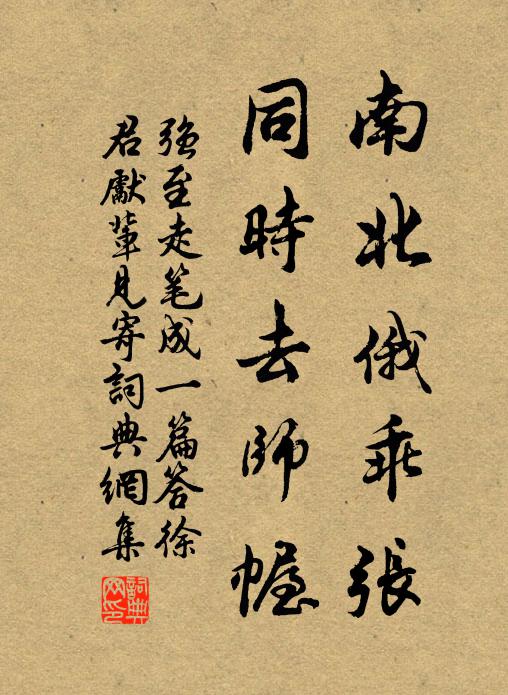 南北俄乖張
同時去師幄
強至走笔成一篇答徐
君獻輩見寄詞典網集
詞典网印